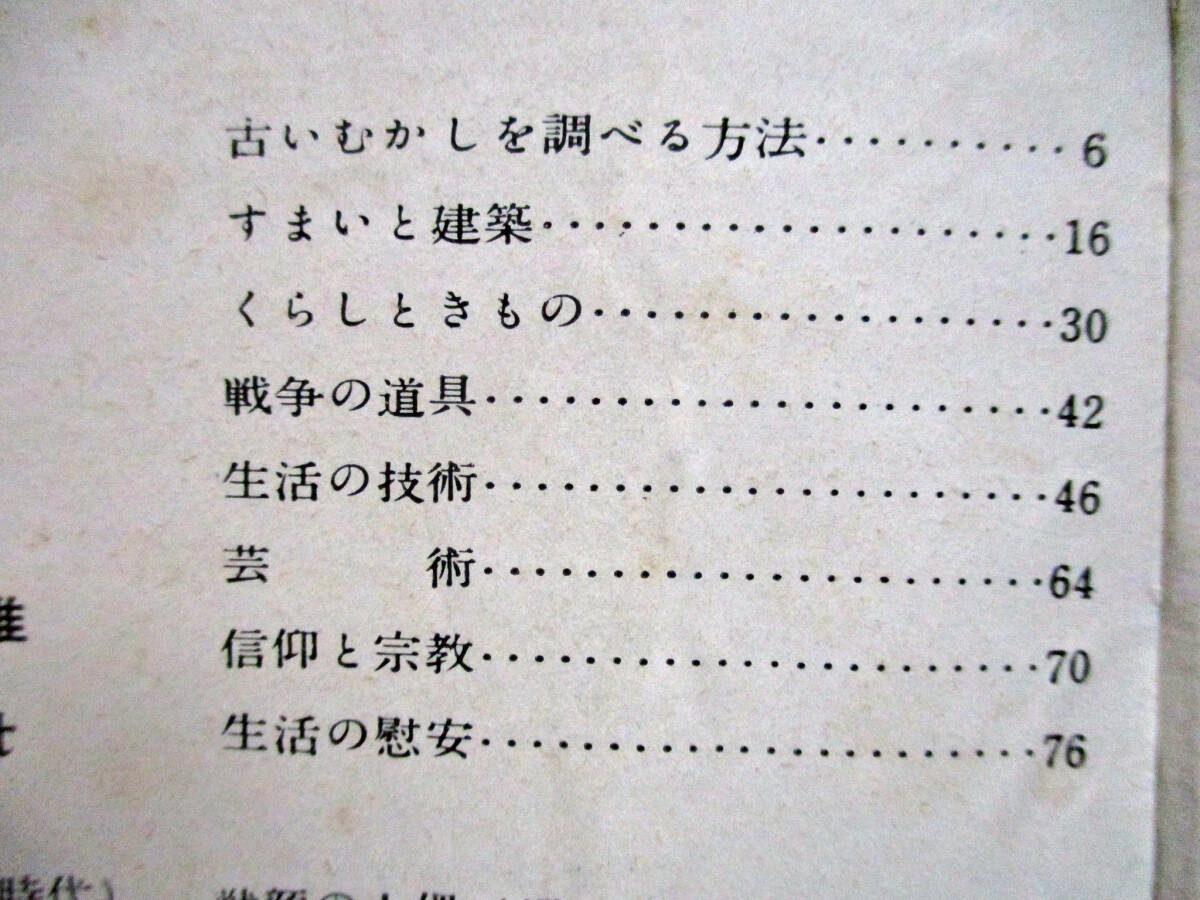 古いむかしを調べる方法··········6
すまいと建築····················16
くらしときもの··················30
戦争の道具······················42
生活の技術······················46
芸　　　術······················64
信仰と宗教······················70
生活の慰安······················76
時代)